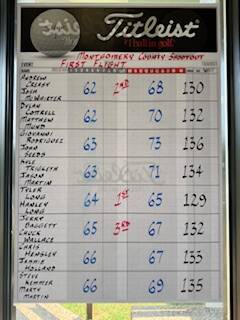 Titleist
#1 ball in golf.
EVENT MONTGOMERY COUNTY SHOOTOUT
FIRST FLIGHT
ANDREW CREASY
JOSH MCWHIRTER 62 2ND 68 130
DYLAN COTTRELL
MATTHEW MUND 62 70 132
GIOVANNI RODRIGUEZ
JOHN SEEDS 63 73 136
KYLE TRICKETH
JASON MARTIN 63 71 134
TYLER LONG
HANLEY LONG 64 1ST 65 129
JERRY BAGGETT
CHUCK WALLACE 65 3RD 67 132
CHRIS HENSLEY
JAMMIE HOLLAND 66 67 133
STEVE KEMMER
MARTY MARTIN 66 69 135